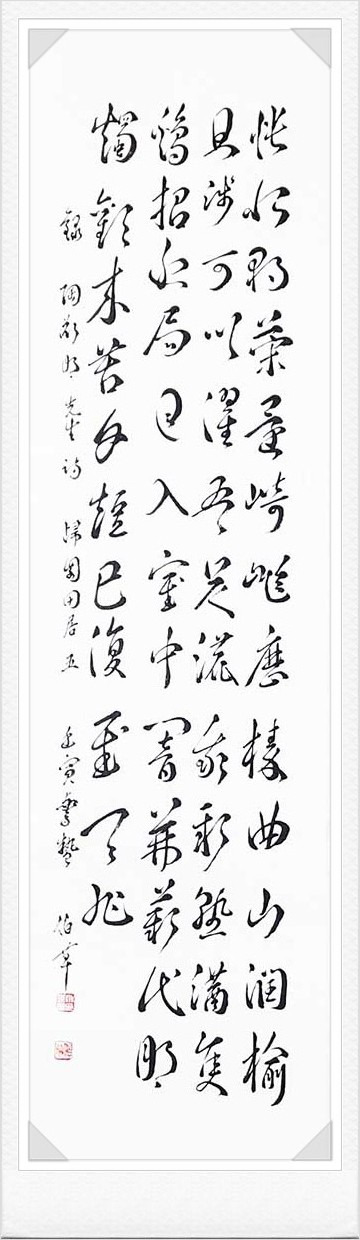 悵恨獨策還崎嶇歷榛曲山澗
且淺可以濯吾足漉我新熟酒隻
雞招近局日入室中闇荊薪代明
燭歡來苦夕短已復至天旭
錄 陶淵明先生詩 歸園田居五 壬寅驚蟄 伯